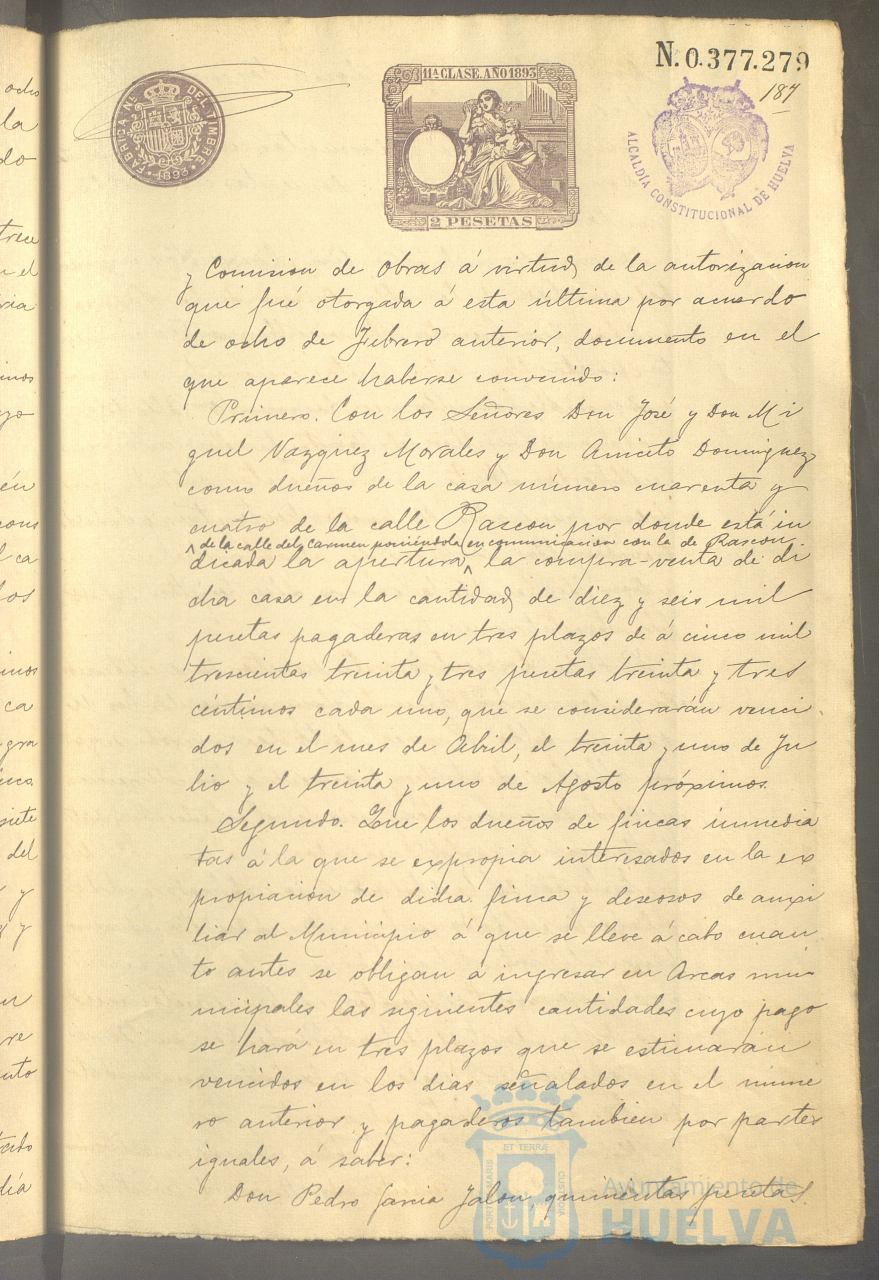 N. 0.377.279
187
11ª CLASE. AÑO 1893
2 PESETAS
FÁBRICA NL. DEL TIMBRE
1893
ALCALDÍA CONSTITUCIONAL DE HUELVA
y Comision de obras á virtud, de la autorizacion
que fué otorgada á esta última por acuerdo
de ocho de Febrero anterior, documento en el
que aparece haberse convenido:
Primero. Con los Señores Don José y Don Mi
guel Vazquez Morales y Don Aniceto Dominguez
como dueños de la casa número cuarenta y
cuatro de la calle Rascon por donde está in
de la calle del Carmen poniéndola en comunicacion con la de Rascon
dicada la apertura la compra-venta de di
cha casa en la cantidad, de diez y seis mil
pesetas pagaderas en tres plazos de á cinco mil
trescientas treinta y tres pesetas treinta y tres
céntimos cada uno, que se considerarán venci
dos en el mes de Abril, el treinta y uno de Ju
lio y el treinta y uno de Agosto próximos.
Segundo. Que los dueños de fincas inmedia
tas á la que se expropia interesados en la ex
propiacion de dicha finca y deseosos de auxi
liar al Municipio á que se lleve á cabo cuan
to antes se obligan á ingresar en Arcas mu-
nicipales las siguientes cantidades cuyo pago
se hará en tres plazos que se estimarán
vencidos en los dias señalados en el núme
ro anterior y pagaderos tambien por partes
iguales, á saber:
Don Pedro Garcia Jalon, quinientas pesetas.
PORTUS MARIS ET TERRÆ CUSTODIA
Ayuntamiento de
HUELVA